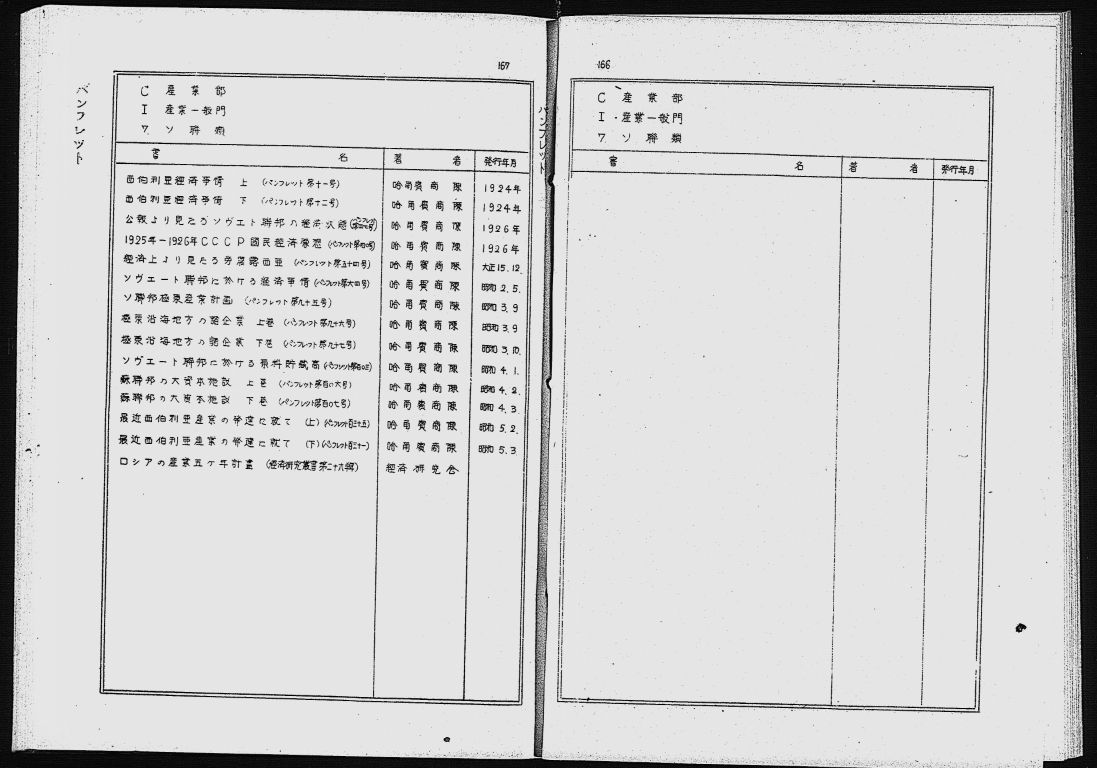 167
パンフレット
C 産業部
I 産業一般門
7. ソ聯類
書名 著者 発行年月
西伯利亜經済事情 上 (パンフレット第十一号) 哈爾賓商隊 1924年
西伯利亜經済事情 下 (パンフレット第十二号) 哈爾賓商隊 1924年
公報より見たるソヴエト聯邦の経済状態 哈爾賓商隊 1926年
1925年-1926年CCCP國民經済 (パンフレット第四〇号) 哈爾賓商隊 1926年
經済上より見たる労農露西亜 (パンフレット第五十四号) 哈爾賓商隊 大正15.12.
ソヴエート聯邦に於ける經済事情 (パンフレット第六四号) 哈爾賓商隊 昭和2.5.
ソ聯邦極東産業計画 (パンフレット第九十五号) 哈爾賓商隊 昭和3.9
極東沿海地方の諸企業 上巻 (パンフレット第九十六号) 哈爾賓商隊 昭和3.9
極東沿海地方の諸企業 下巻 (パンフレット第九十七号) 哈爾賓商隊 昭和3.10.
ソヴエート聯邦に於ける 貯蔵高 哈爾賓商隊 昭和4.1.
蘇聯邦の大資本施設 上巻 (パンフレット第百〇六号) 哈爾賓商隊 昭和4.2.
蘇聯邦の大資本施設 下巻 (パンフレット第百〇七号) 哈爾賓商隊 昭和4.3
最近西伯利亜産業の発達に就て (上) 哈爾賓商隊 昭和5.2.
最近西伯利亜産業の発達に就て (下) 哈爾賓商隊 昭和5.3
ロシアの産業五ヶ年計畫 (經済研究叢書第二十六輯) 經済研究会
166
パンフレット
C 産業部
I 産業一般門
7. ソ聯類
書名 著者 発行年月